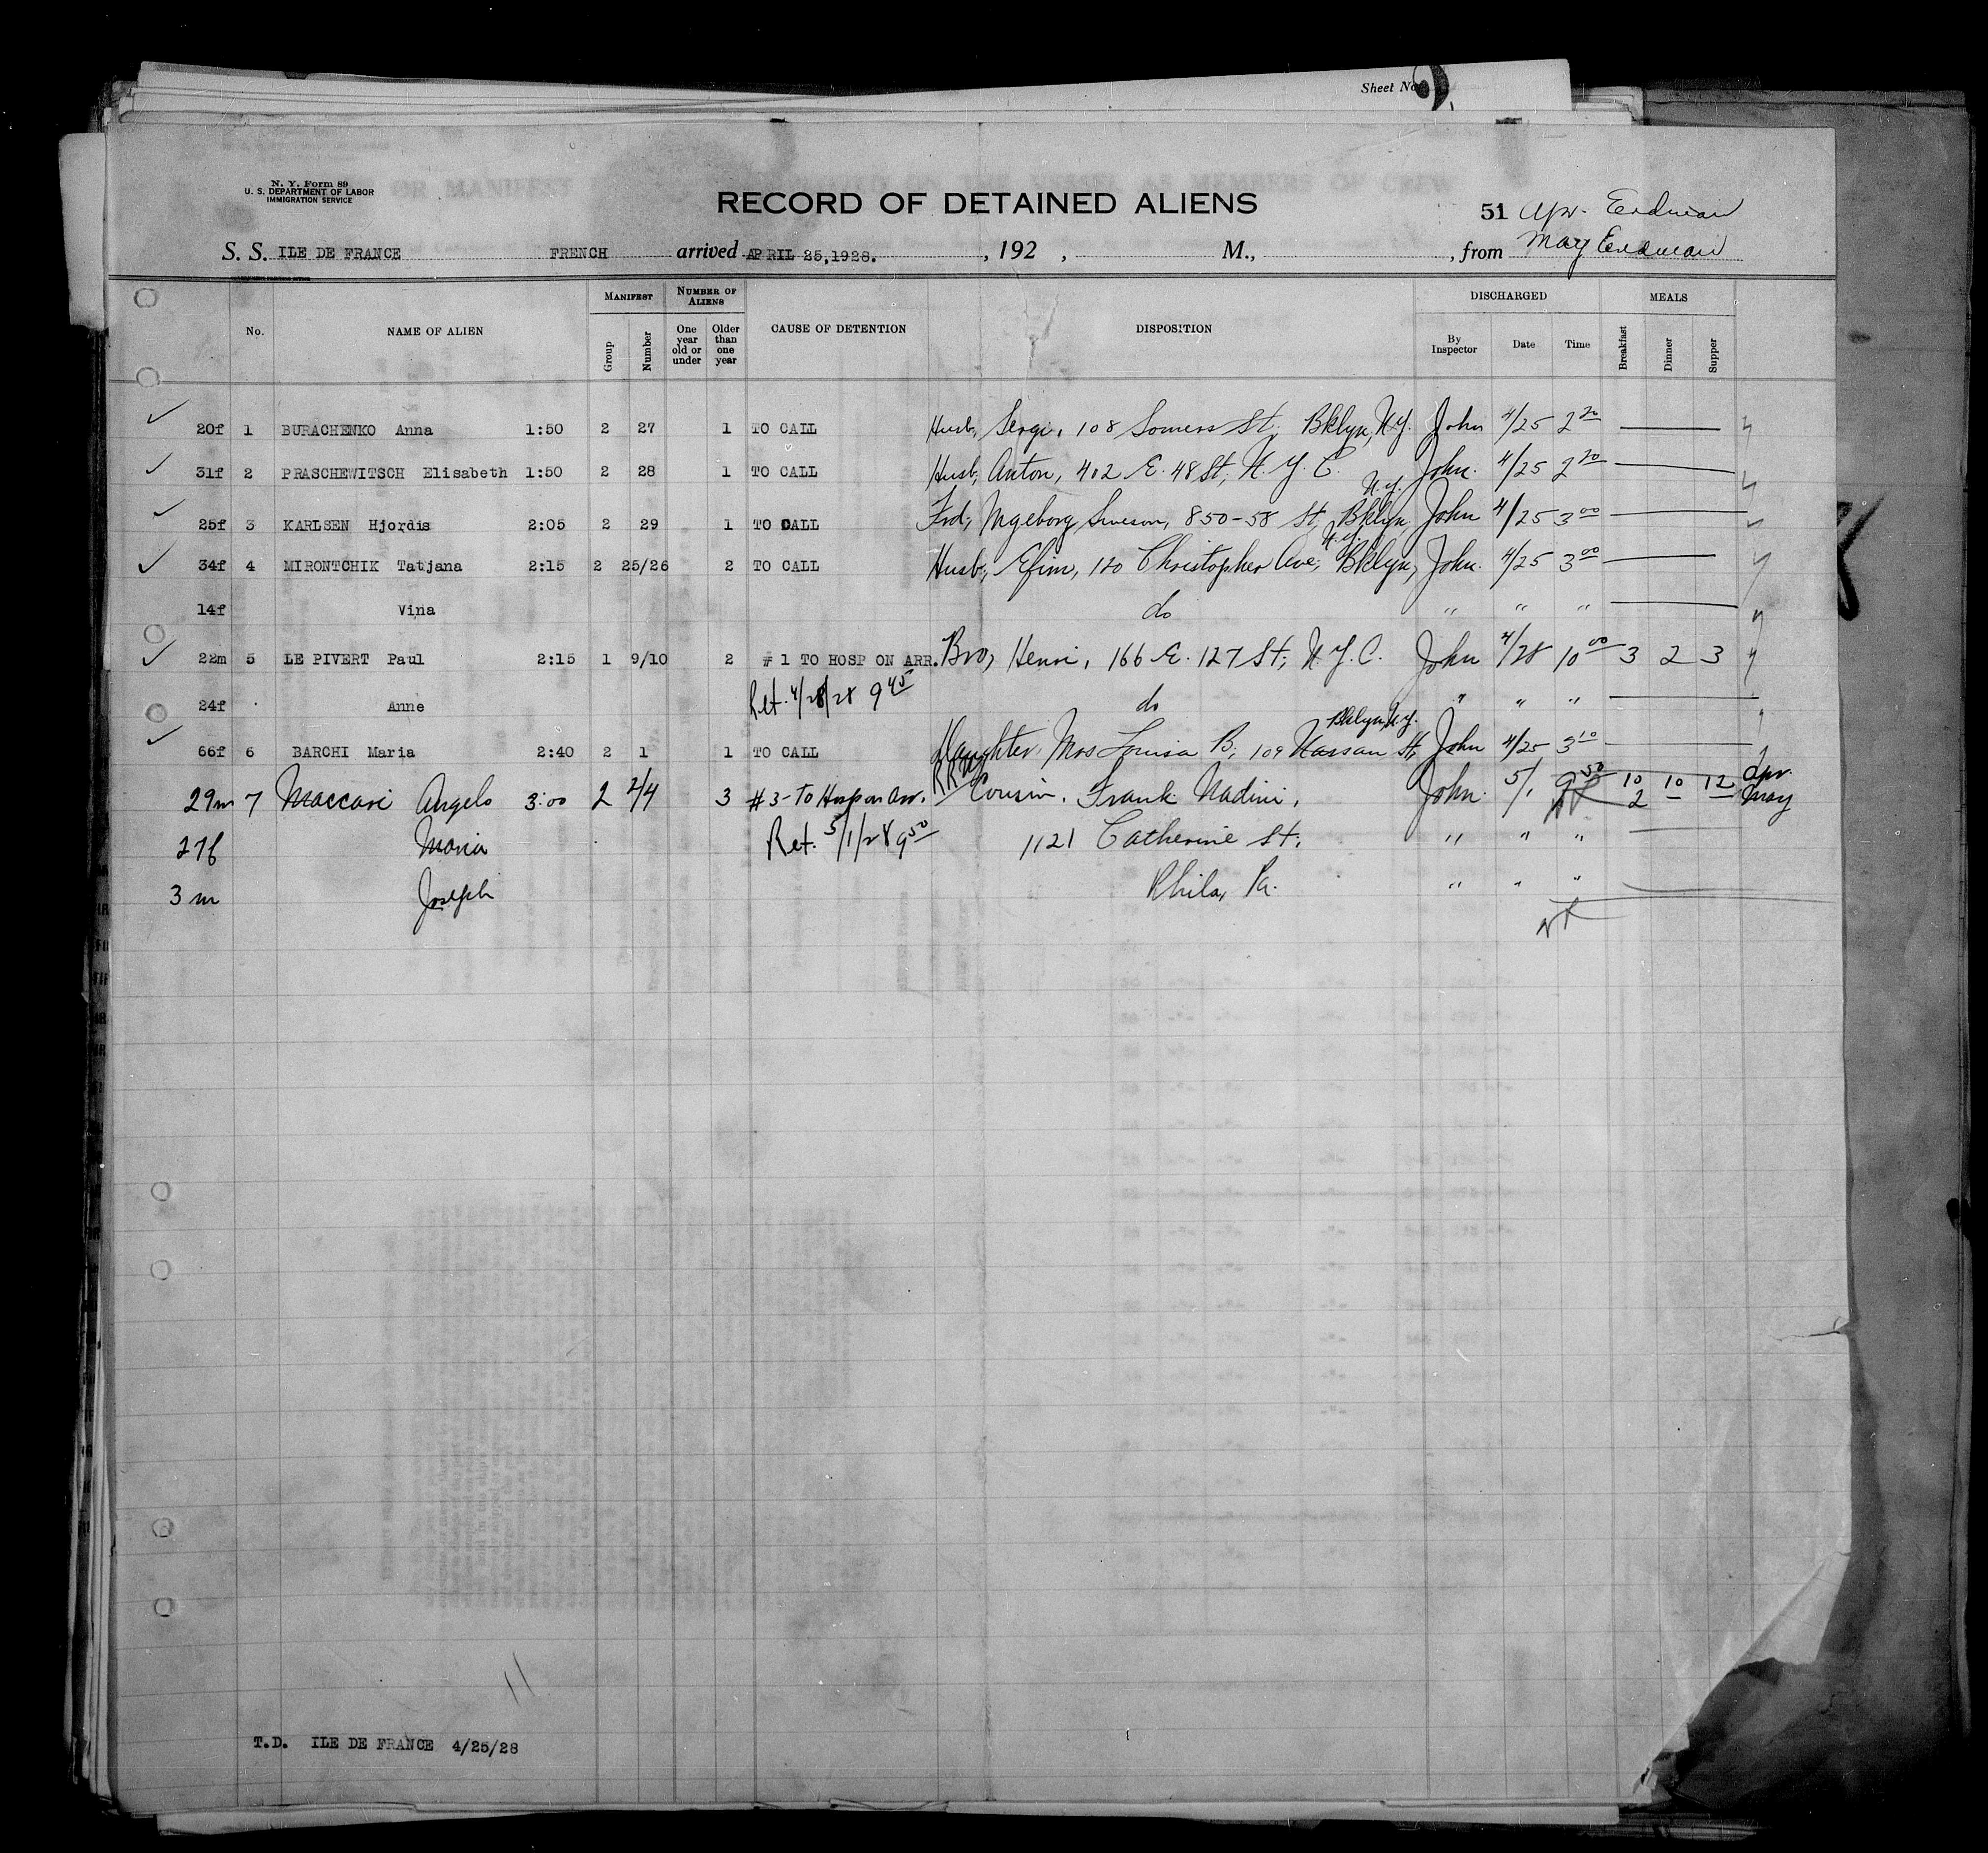 Sheet No.
N. Y. Form 89
U. S. DEPARTMENT OF LABOR
IMMIGRATION SERVICE
RECORD OF DETAINED ALIENS
51 Apr. Erdman
S. S. ILE DE FRANCE FRENCH arrived APRIL 25,1928. , 192 , M., , from May Erdman
No. NAME OF ALIEN MANIFEST Group Number NUMBER OF ALIENS One year old or under Older than one year CAUSE OF DETENTION DISPOSITION DISCHARGED By Inspector Date Time MEALS Breakfast Dinner Supper
20f 1 BURACHENKO Anna 1:50 2 27 1 TO CALL Husb, Sergi, 108 Somers St, Bklyn, N.Y. John 4/25 2 20
31f 2 PRASCHEWITSCH Elisabeth 1:50 2 28 1 TO CALL Husb, Anton, 402 E. 48 St, N. Y. C. John. 4/25 2 20
25f 3 KARLSEN Hjordis 2:05 2 29 1 TO CALL Frd, Ingeborg 850-58 St, Bklyn, N.Y. John 4/25 3 00
34f 4 MIRONTCHIK Tatjana 2:15 2 25/26 2 TO CALL Husb, Efim, 120 Christopher Ave, Bklyn, N.Y. John. 4/25 3 00
14f Vina do " " "
22m 5 LE PIVERT Paul 2:15 1 9/10 2 #1 TO HOSP ON ARR. Bro, Henri, 166 E. 127 St, N. Y. C. John 4/28 10 00 3 2 3
24f Anne Ret. 4/28/28 9 45 do " " "
66f 6 BARCHI Maria 2:40 2 1 1 TO CALL Daughter, Mrs Louisa B, 109 Nassau St, Bklyn, N.Y. John 4/25 3 10
29m 7 Maccari Angelo 3:00 2 2/4 3 #3-To Hosp on Arr. Cousin, Frank Nadini, John. 5/1 9 50 10 10 12 Apr.
2 May
27f Maria Ret. 5/1/28 9 50 1121 Catherine St. " " "
3m Joseph Phila, Pa. " " "
T.D. ILE DE FRANCE 4/25/28